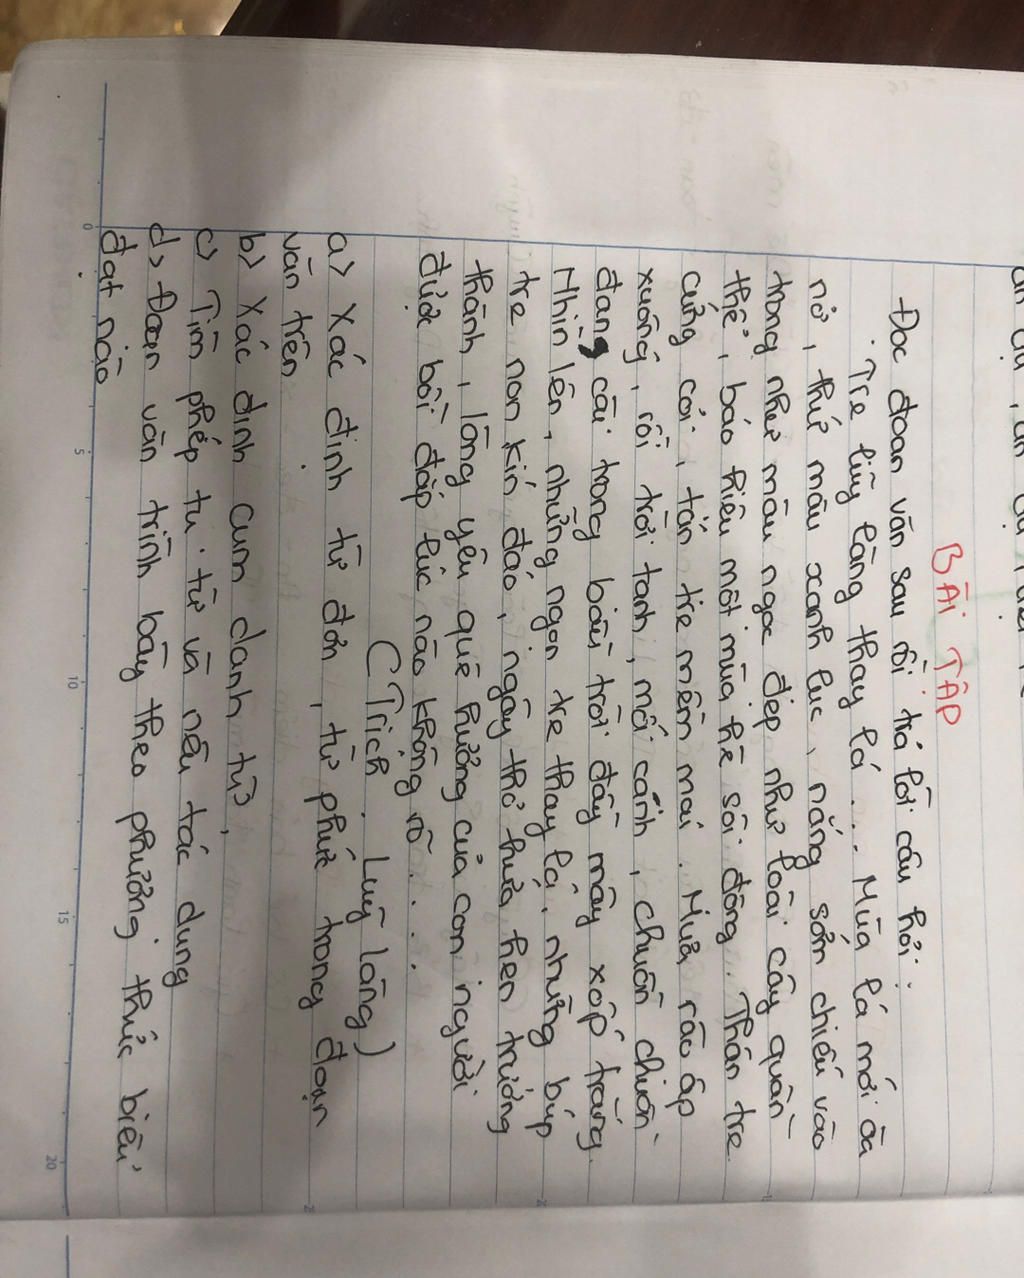 BÀI TẬP
Đọc đoạn văn sau rồi trả lời câu hỏi:
Tre lũy làng thay lá... Mùa lá mới oà
nở, thứ màu xanh lục, nắng sớm chiếu vào
trong như màu ngọc đẹp như loài cây quần
thể, báo hiệu một mùa hè sôi động. Thân tre
cứng cỏi, tán tre mềm mại. Mưa rào ập
xuống, rồi trời tạnh, mối cánh, chuồn chuồn
đan cài trong bầu trời đầy mây xốp trắng.
Nhìn lên, những ngọn tre thay lá, những búp
tre non kín đáo, ngây thơ hứa hẹn trưởng
thành, lòng yêu quê hương của con người
được bồi đắp lúc nào không rõ....
(Trích. Luỹ làng)
a) Xác định từ đơn, từ phức trong đoạn
văn trên
b) Xác định cụm danh từ,
c) Tìm phép tu từ và nêu tác dụng
d) Đoạn văn trình bày theo phương thức biểu
đạt nào